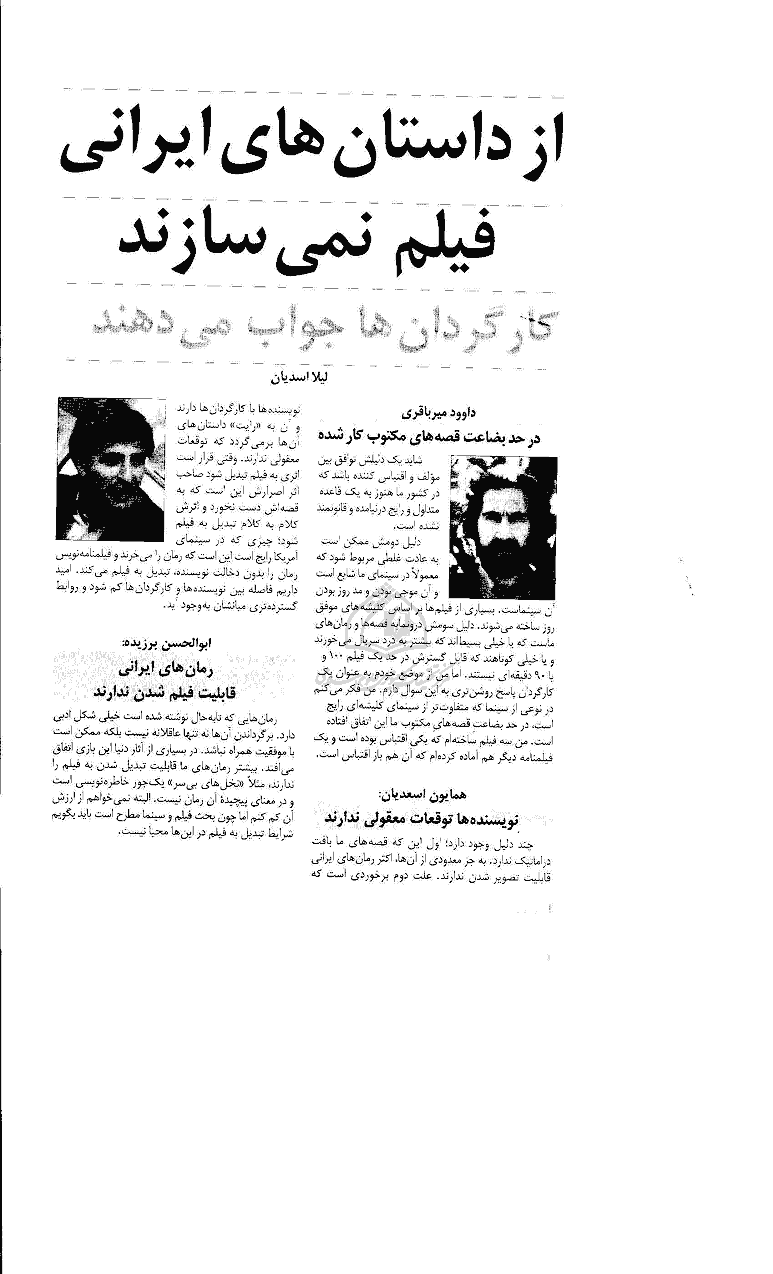 از داستان های ایرانی
فیلم نمی سازند
کارگردان ها جواب می‌دهند
لیلا اسدیان
داوود میرباقری
در حد بضاعت قصه‌های مکتوب کار شده
شاید یک دلیلش توافق بین
مؤلف و اقتباس کننده باشد که
در کشور ما هنوز به یک قاعده
متداول و رایج درنیامده و قانونمند
نشده است.
دلیل دومش ممکن است
به عادت غلطی مربوط شود که
معمولاً در سینمای ما شایع است
و آن موجی بودن و مد روز بودن
آن سینماست. بسیاری از فیلم‌ها بر اساس کلیشه‌های موفق
روز ساخته می‌شوند. دلیل سومش درونمایه قصه‌ها و رمان‌های
ماست که یا خیلی بسیط‌اند که بیشتر به درد سریال می‌خورند
و یا خیلی کوتاهند که قابل گسترش در حد یک فیلم ۱۰۰ و
یا ۹۰ دقیقه‌ای نیستند. اما من از موضع خودم به عنوان یک
کارگردان پاسخ روشن‌تری به این سوال دارم. من فکر می‌کنم
در نوعی از سینما که متفاوت‌تر از سینمای کلیشه‌ای رایج
است، در حد بضاعت قصه‌های مکتوب ما این اتفاق افتاده
است. من سه فیلم ساخته‌ام که یکی اقتباس بوده است و یک
فیلمنامه دیگر هم آماده کرده‌ام که آن هم باز اقتباس است.
همایون اسعدیان:
نویسنده‌ها توقعات معقولی ندارند
چند دلیل وجود دارد؛ اول این که قصه‌های ما بافت
دراماتیک ندارد. به جز معدودی از آن‌ها، اکثر رمان‌های ایرانی
قابلیت تصویر شدن ندارند. علت دوم برخوردی است که
نویسنده‌ها با کارگردان‌ها دارند
و آن به «رایت» داستان‌های
آن‌ها برمی‌گردد که توقعات
معقولی ندارند. وقتی قرار است
اثری به فیلم تبدیل شود صاحب
اثر اصرارش این است که به
قصه‌اش دست نخورد و اثرش
کلام به کلام تبدیل به فیلم
شود؛ چیزی که در سینمای
آمریکا رایج است این است که رمان را می‌خرند و فیلمنامه‌نویس
رمان را بدون دخالت نویسنده، تبدیل به فیلم می‌کند. امید
داریم فاصله بین نویسنده‌ها و کارگردان‌ها کم شود و روابط
گسترده‌تری میانشان به‌وجود ید.
ابوالحسن برزیده:
رمان‌های ایرانی
قابلیت فیلم شدن ندارند
رمان‌هایی که تابه‌حال نوشته شده است خیلی شکل ادبی
دارد. برگرداندن آن‌ها نه تنها عاقلانه نیست بلکه ممکن است
با موفقیت همراه نباشد. در بسیاری از آثار دنیا این بازی اتفاق
می‌افتد. بیشتر رمان‌های ما قابلیت تبدیل شدن به فیلم را
ندارند، مثلاً «نخل‌های بی‌سر» یک‌جور خاطره‌نویسی است
و در معنای پیچیدهٔ آن رمان نیست. البته نمی‌خواهم از ارزش
آن کم کنم اما چون بحث فیلم و سینما مطرح است باید بگویم
شرایط تبدیل به فیلم در این‌ها محیا نیست.